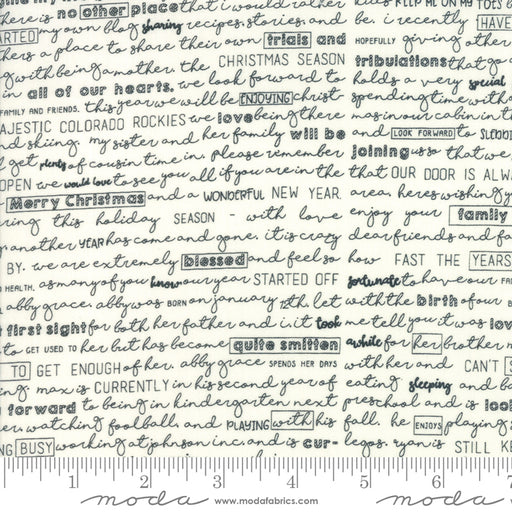 there is no other place that i would rather
kids KEEP ME ON MY TOES
ARTED my own blog sharing recipes, stories, and be. i recently HAVE
hers a place to share their own trials and HOPEFULLY giving other
g with being a mother. the CHRISTMAS SEASON tribulations that go
in all of our hearts. we look forward to holds a very special
FAMILY AND FRIENDS. this year we will be ENJOYING christ spending time with
AJESTIC COLORADO ROCKIES we love being there mas in our cabin in th
nd skiing. my sister and her family will be and LOOK FORWARD to SLEDDI
l get plenty of cousin time in. please remember joining us so that we
OPEN we would love to see you all if you are in the that OUR DOOR IS ALW
Merry Christmas and a WONDERFUL NEW YEAR area. here's wishing y
ring this holiday SEASON - with love enjoy your family
another YEAR has come and gone. it is crazy dear friends and fa
BY. we are extremely blessed and feel so how FAST THE YEARS
HEALTH. as many of you know our year STARTED OFF fortunate to have our FA
abby grace. abby was BORN on january 12th. let with the birth of our
first sight for both her father and i. it took me tell you it was lov
to GET USED TO her but has become quite smitten awhile for her brother m
TO GET ENOUGH of her. abby grace SPENDS HER DAYS with her and CAN'T
ing max is CURRENTLY in his second year of eating sleeping and ba
forward to being in kindergarten next preschool and is look
er. watching football, and PLAYING with his fall. he ENJOYS playing
NG BUSY working at johnson inc. and is cur- legos. ryan is STILL KE
1 2 3 4 5 6 7
moda www.modafabrics.com moda